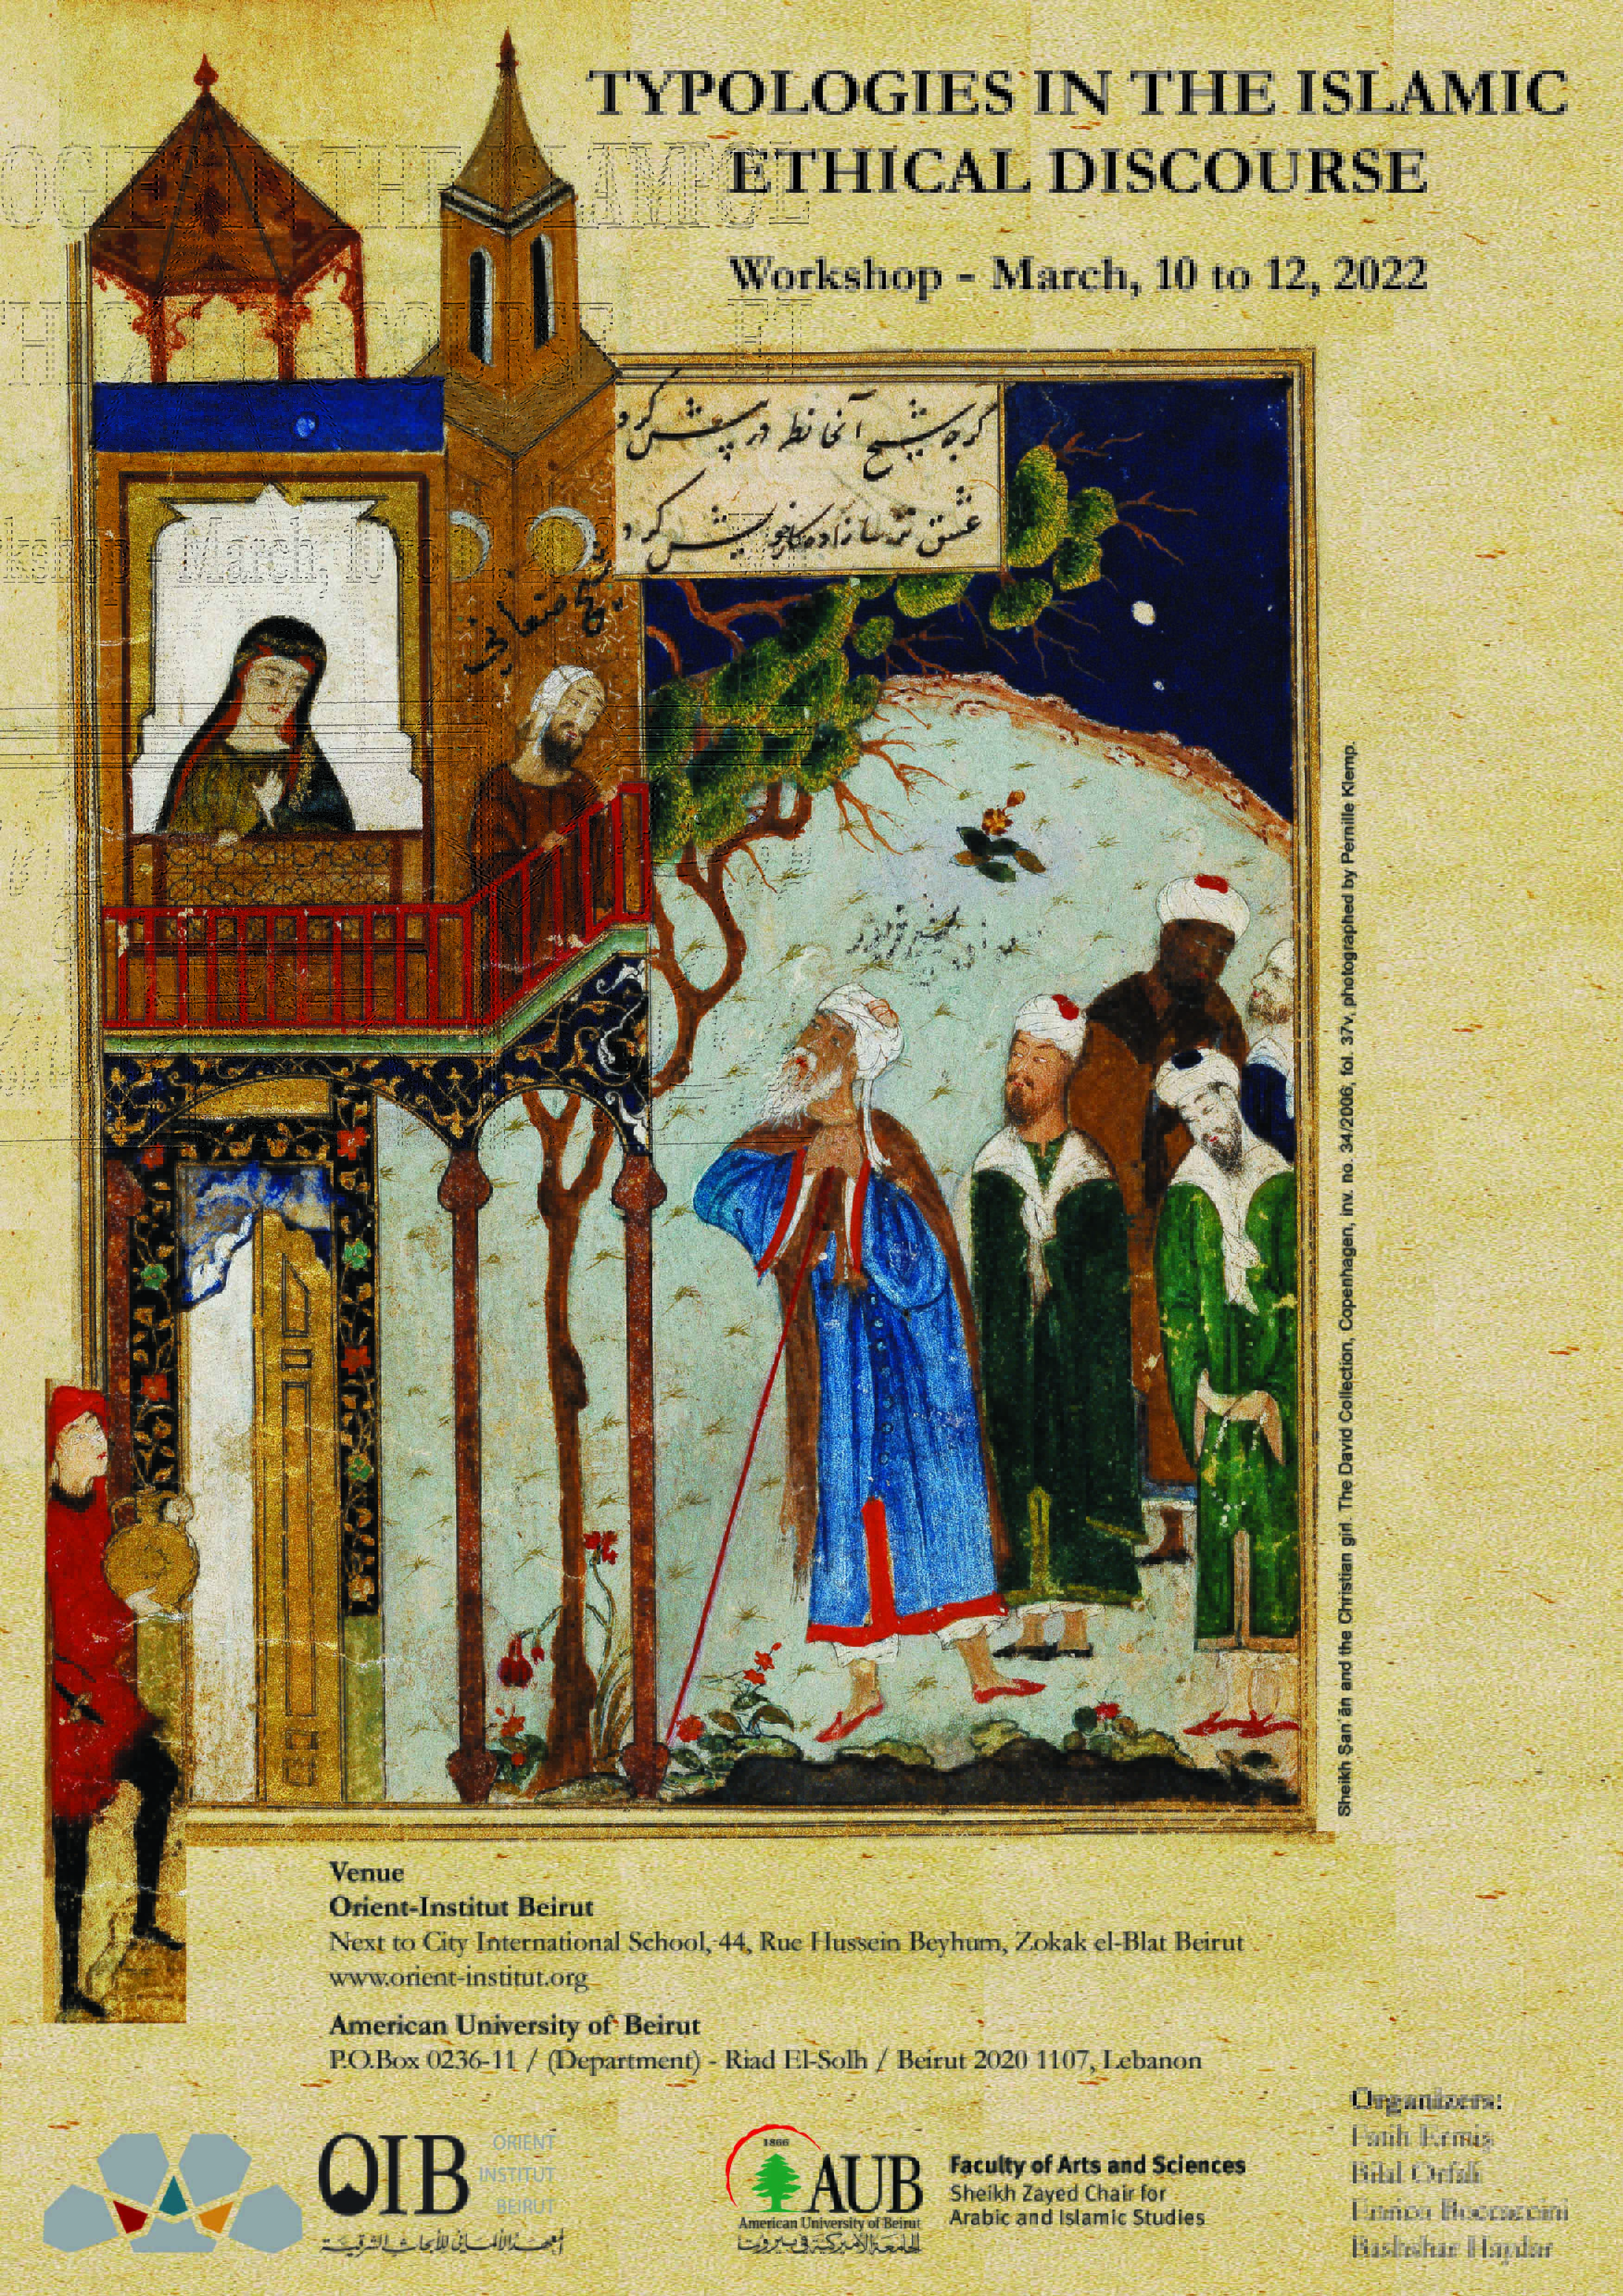 TYPOLOGIES IN THE ISLAMIC
ETHICAL DISCOURSE
Workshop - March, 10 to 12, 2022
گرچه شیخ آنجا نظر در پیش کرد
عشق ترسازاده کار خویش کرد
شیخ صنعانی
Sheikh San'ān and the Christian girl. The David Collection, Copenhagen, inv. no. 34/2006, fol. 37v, photographed by Pernille Klemp.
Venue
Orient-Institut Beirut
Next to City International School, 44, Rue Hussein Beyhum, Zokak el-Blat Beirut
www.orient-institut.org
American University of Beirut
P.O.Box 0236-11 / (Department) - Riad El-Solh / Beirut 2020 1107, Lebanon
Organizers:
Fatih Ermiş
Bilal Orfali
Enrico Boccaccini
Bashshar Haydar
OIB
ORIENT
INSTITUT
BEIRUT
المعهد الألماني للأبحاث الشرقية
1866
AUB
American University of Beirut
الجامعة الأميركية في بيروت
Faculty of Arts and Sciences
Sheikh Zayed Chair for
Arabic and Islamic Studies